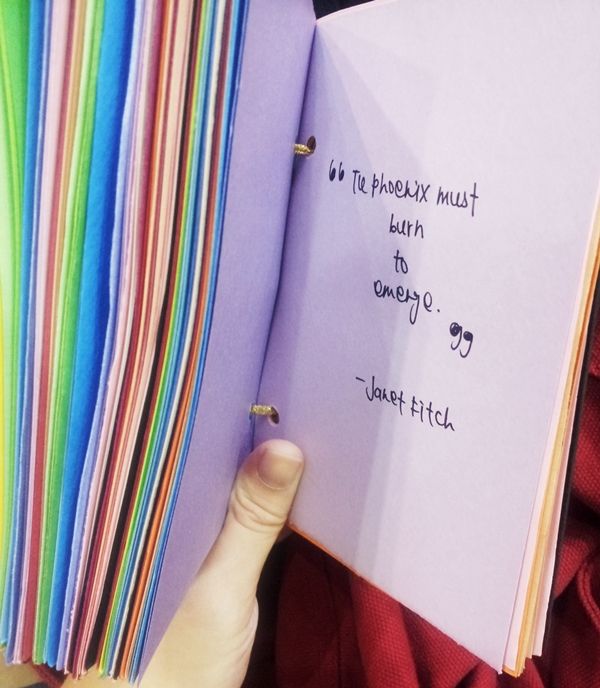 “The phoenix must
burn
to
emerge.
”
-Janet Fitch